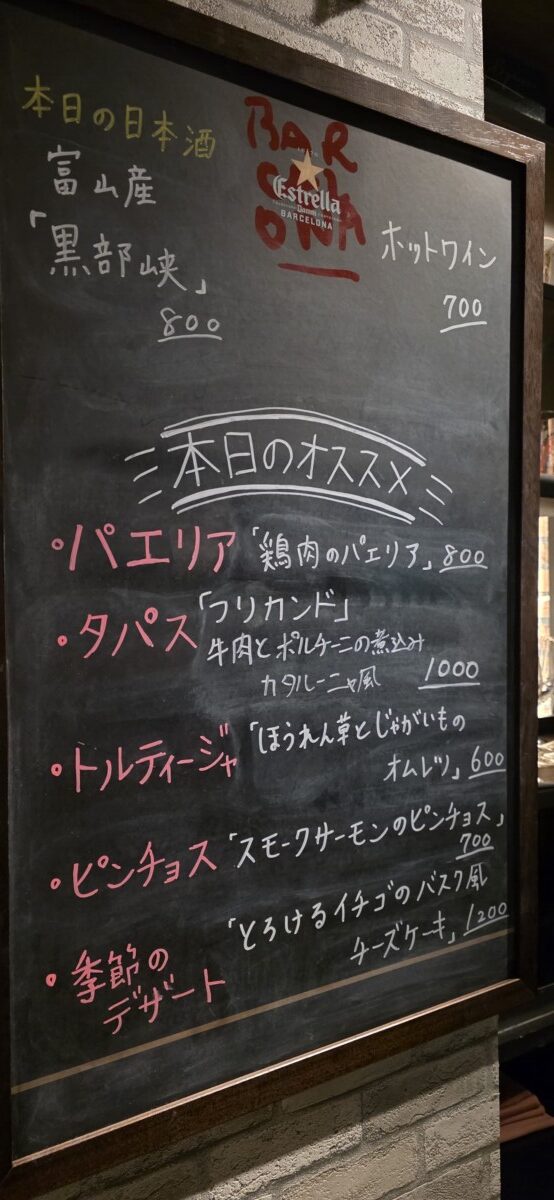 本日の日本酒
富山産
「黒部峡」
800
BAR
CEL
ONA
Estrella
Damm
BARCELONA
ホットワイン
700
本日のオススメ
・パエリア「鶏肉のパエリア」800
・タパス「フリカンド」
牛肉とポルチーニの煮込み
カタルーニャ風 1000
・トルティージャ「ほうれん草とじゃがいもの
オムレツ」600
・ピンチョス「スモークサーモンのピンチョス」
700
・季節の
デザート
「とろけるイチゴのバスク風
チーズケーキ」1200